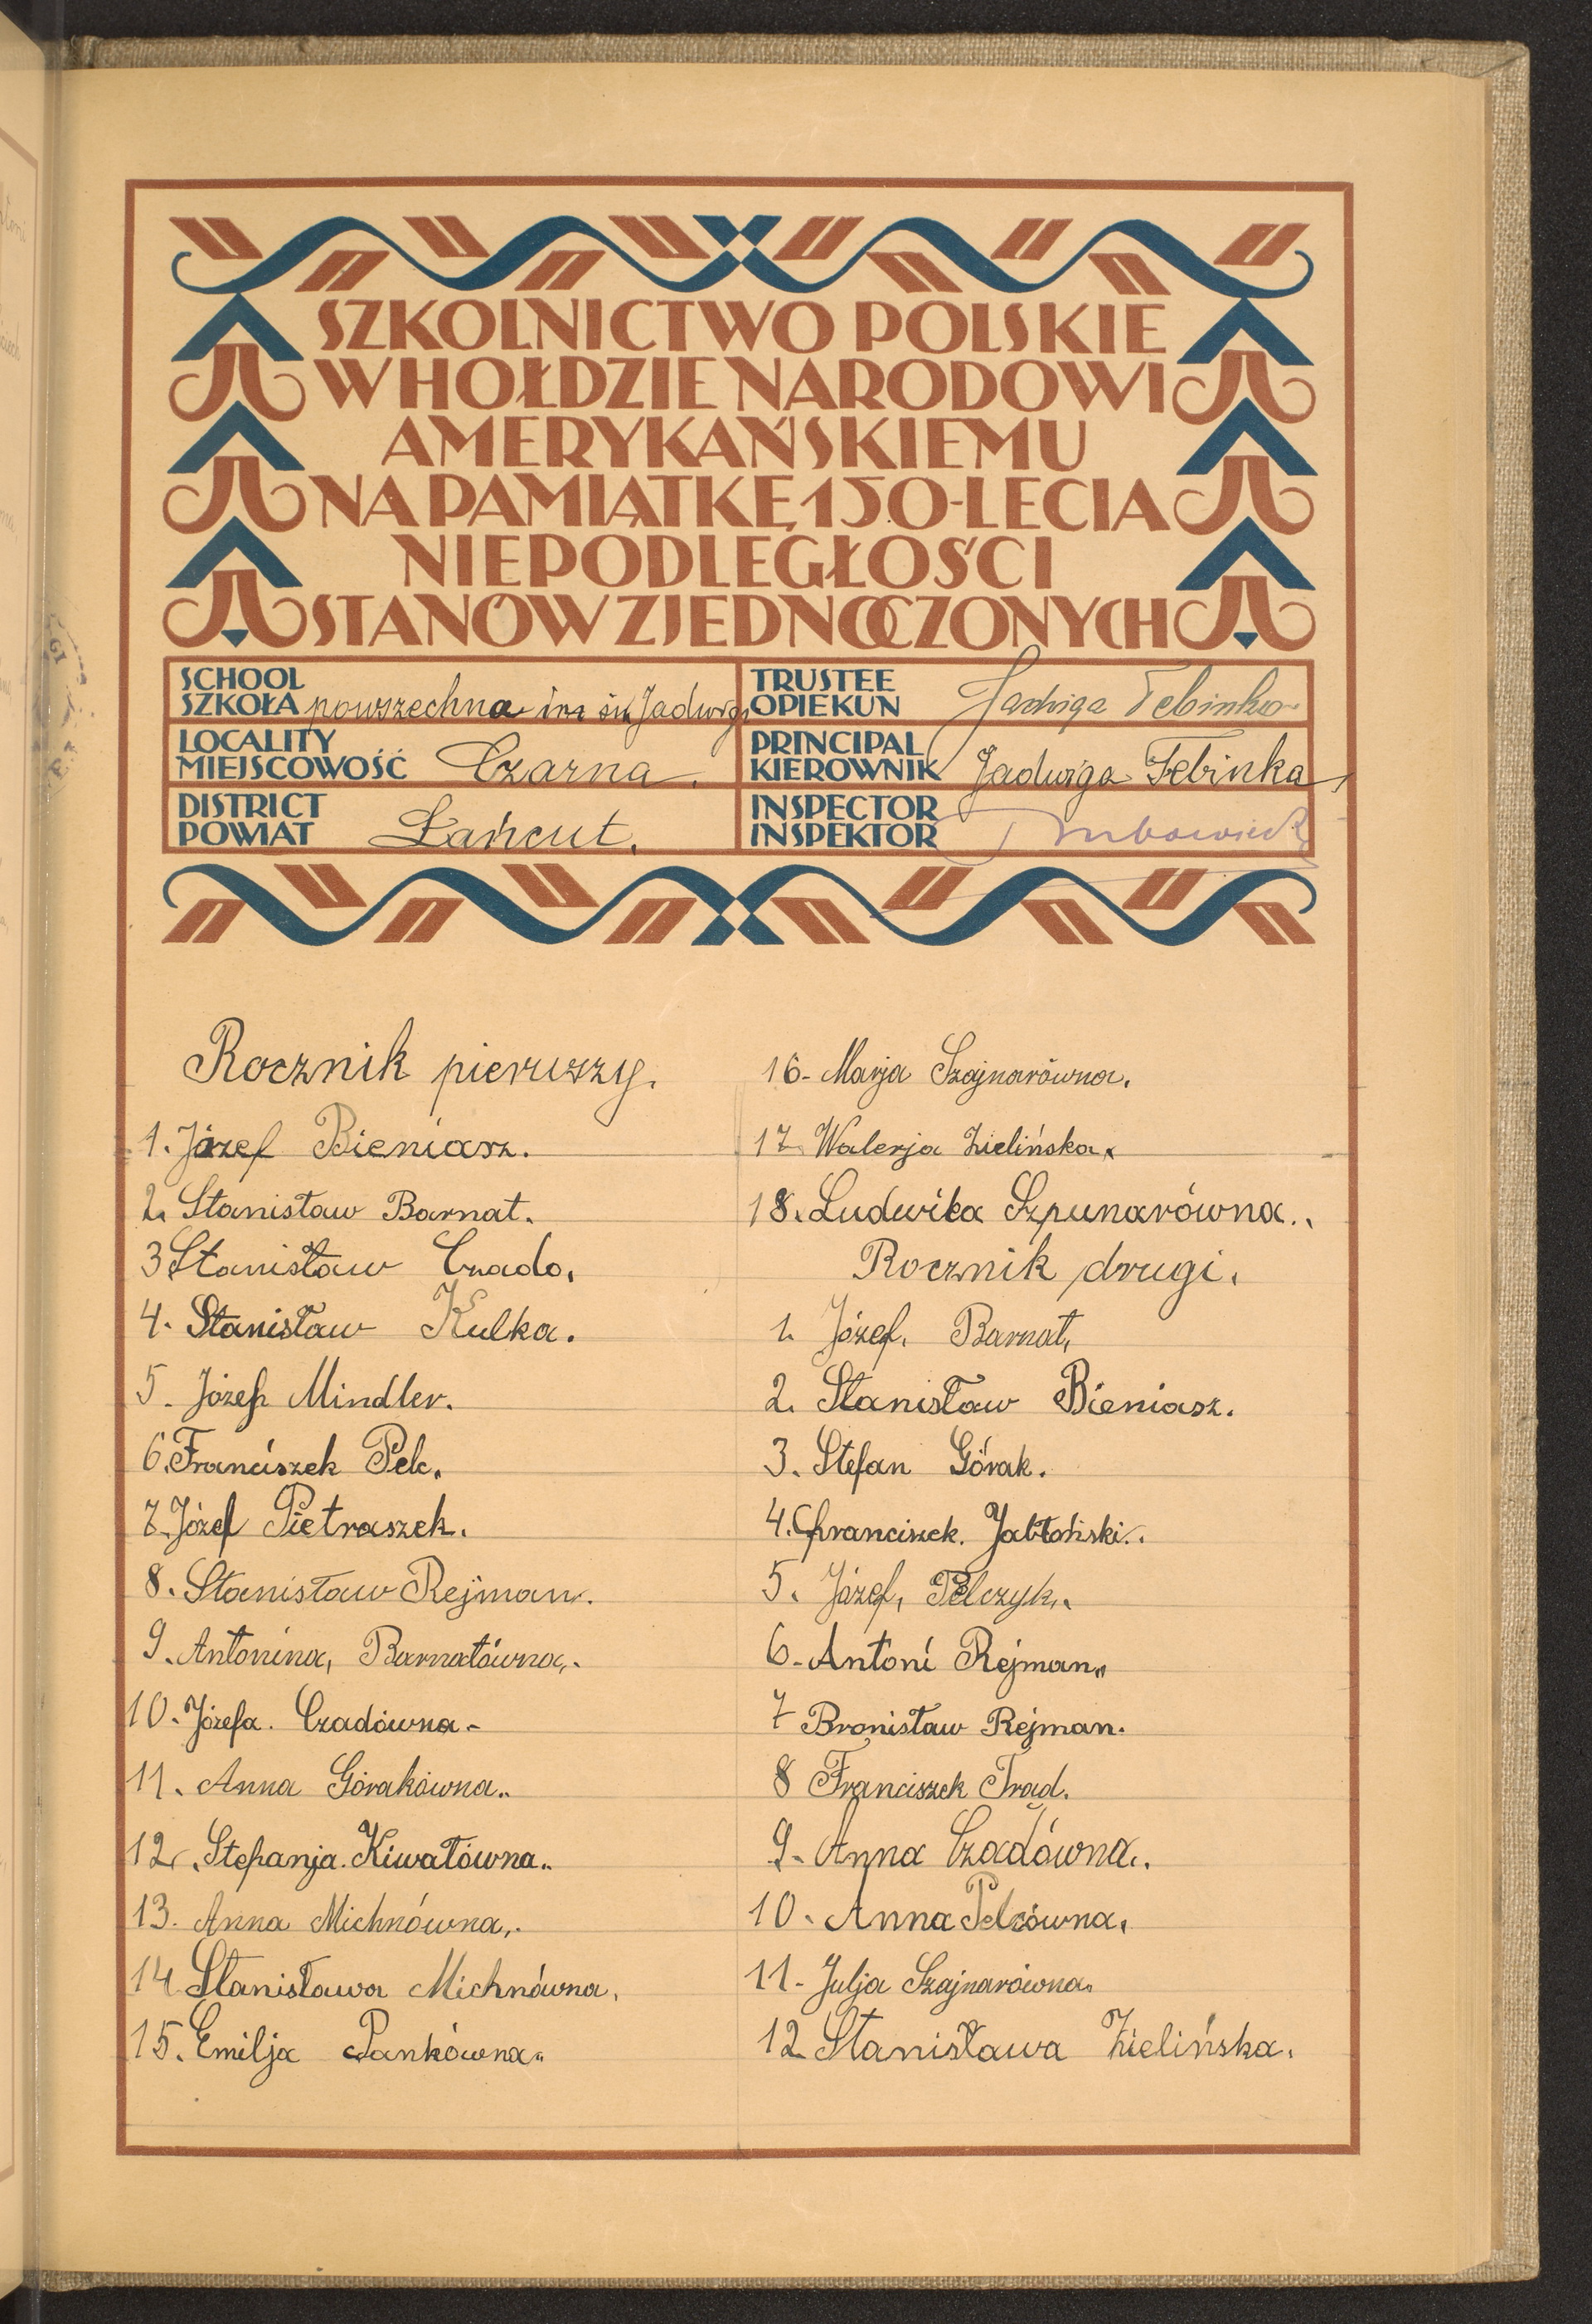 SZKOLNICTWO POLSKIE
W HOŁDZIE NARODOWI
AMERYKAŃSKIEMU
NA PAMIĄTKĘ 150-LECIA
NIEPODLEGŁOŚCI
STANÓW ZJEDNOCZONYCH
SCHOOL
SZKOŁA powszechna im św Jadwigi
TRUSTEE
OPIEKUN Jadwiga Febinka
LOCALITY
MIEJSCOWOŚĆ Czarna.
PRINCIPAL
KIEROWNIK Jadwiga Febinka
DISTRICT
POWIAT Łańcut.
INSPECTOR
INSPEKTOR
Rocznik pierwszy.
1. Józef Bieniasz.
2. Stanisław Barnat.
3 Stanisław Czado.
4. Stanisław Kulka.
5. Józef Mindler.
6. Franciszek Pelc.
7. Józef Pietraszek.
8. Stanisław Rejman.
9. Antonina, Barnatówna,.
10. Józefa. Czadówna.
11. Anna Górakówna..
12. Stefanja. Kiwałówna..
13. Anna Michnówna,.
14 Stanisława Michnówna.
15. Emilja Pankówna..
16. Marja Szajnarówna.
17 Walerja Zielińska.
18. Ludwika Szpunarówna..
Rocznik drugi.
1. Józef. Barnat.
2. Stanisław Bieniasz.
3. Stefan Górak.
4. Franciszek. Jabłoński..
5. Józef, Pelczyk..
6. Antoni Rejman..
7 Bronisław Rejman.
8 Franciszek Trad.
9. Anna Czadówna..
10. Anna Pelcówna.
11. Julja Szajnarówna.
12 Stanisława Zielińska.